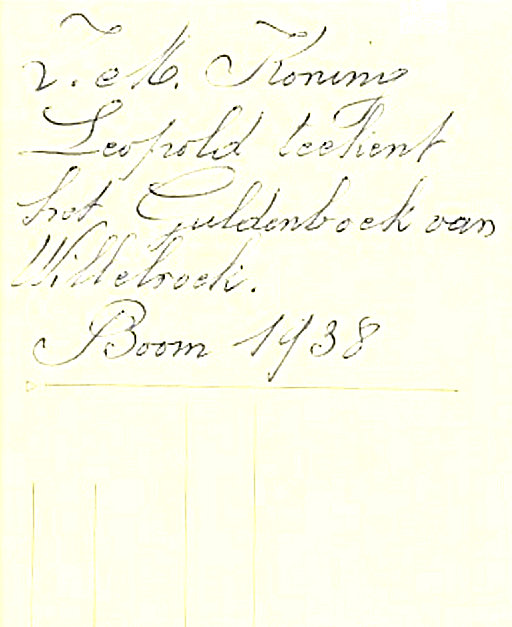 Z. e M. Koning
Leopold teekent
het Guldenboek van
Willebroek.
Boom 1938